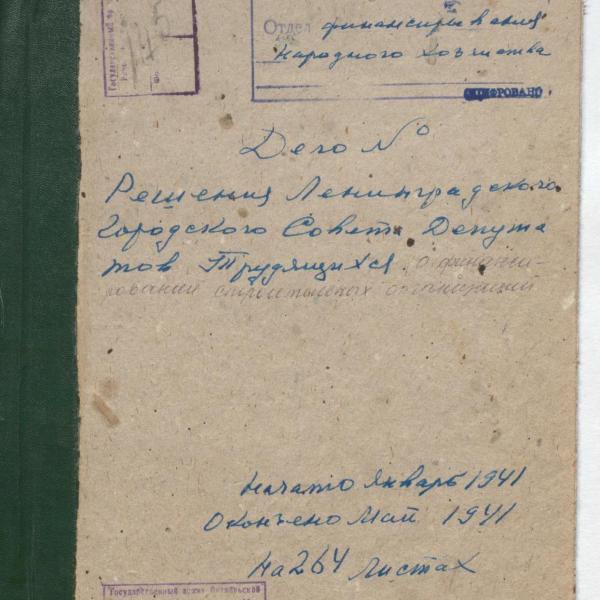 Отдел финансирования
Народного хозяйства
ОЦИФРОВАНО
Дело №
Решения Ленинградского
Городского Совета Депута
тов Трудящихся о финанси-
ровании строительных организаций
Начато Январь 1941
Окончено Май 1941
На 264 листах
Государственный архив Октябрьской